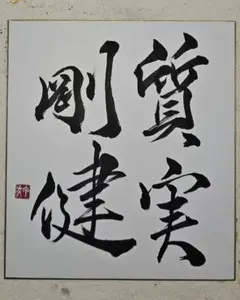 質実
剛健